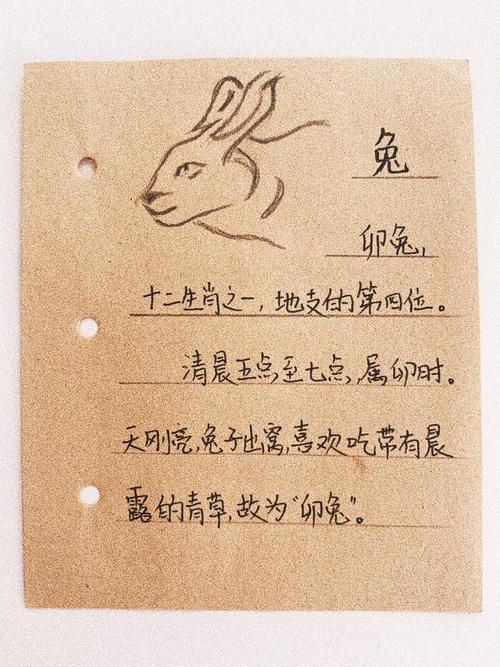 兔
卯兔,
十二生肖之一,地支的第四位。
清晨五点至七点,属卯时。
天刚亮,兔子出窝,喜欢吃带有晨
露的青草,故为“卯兔”。